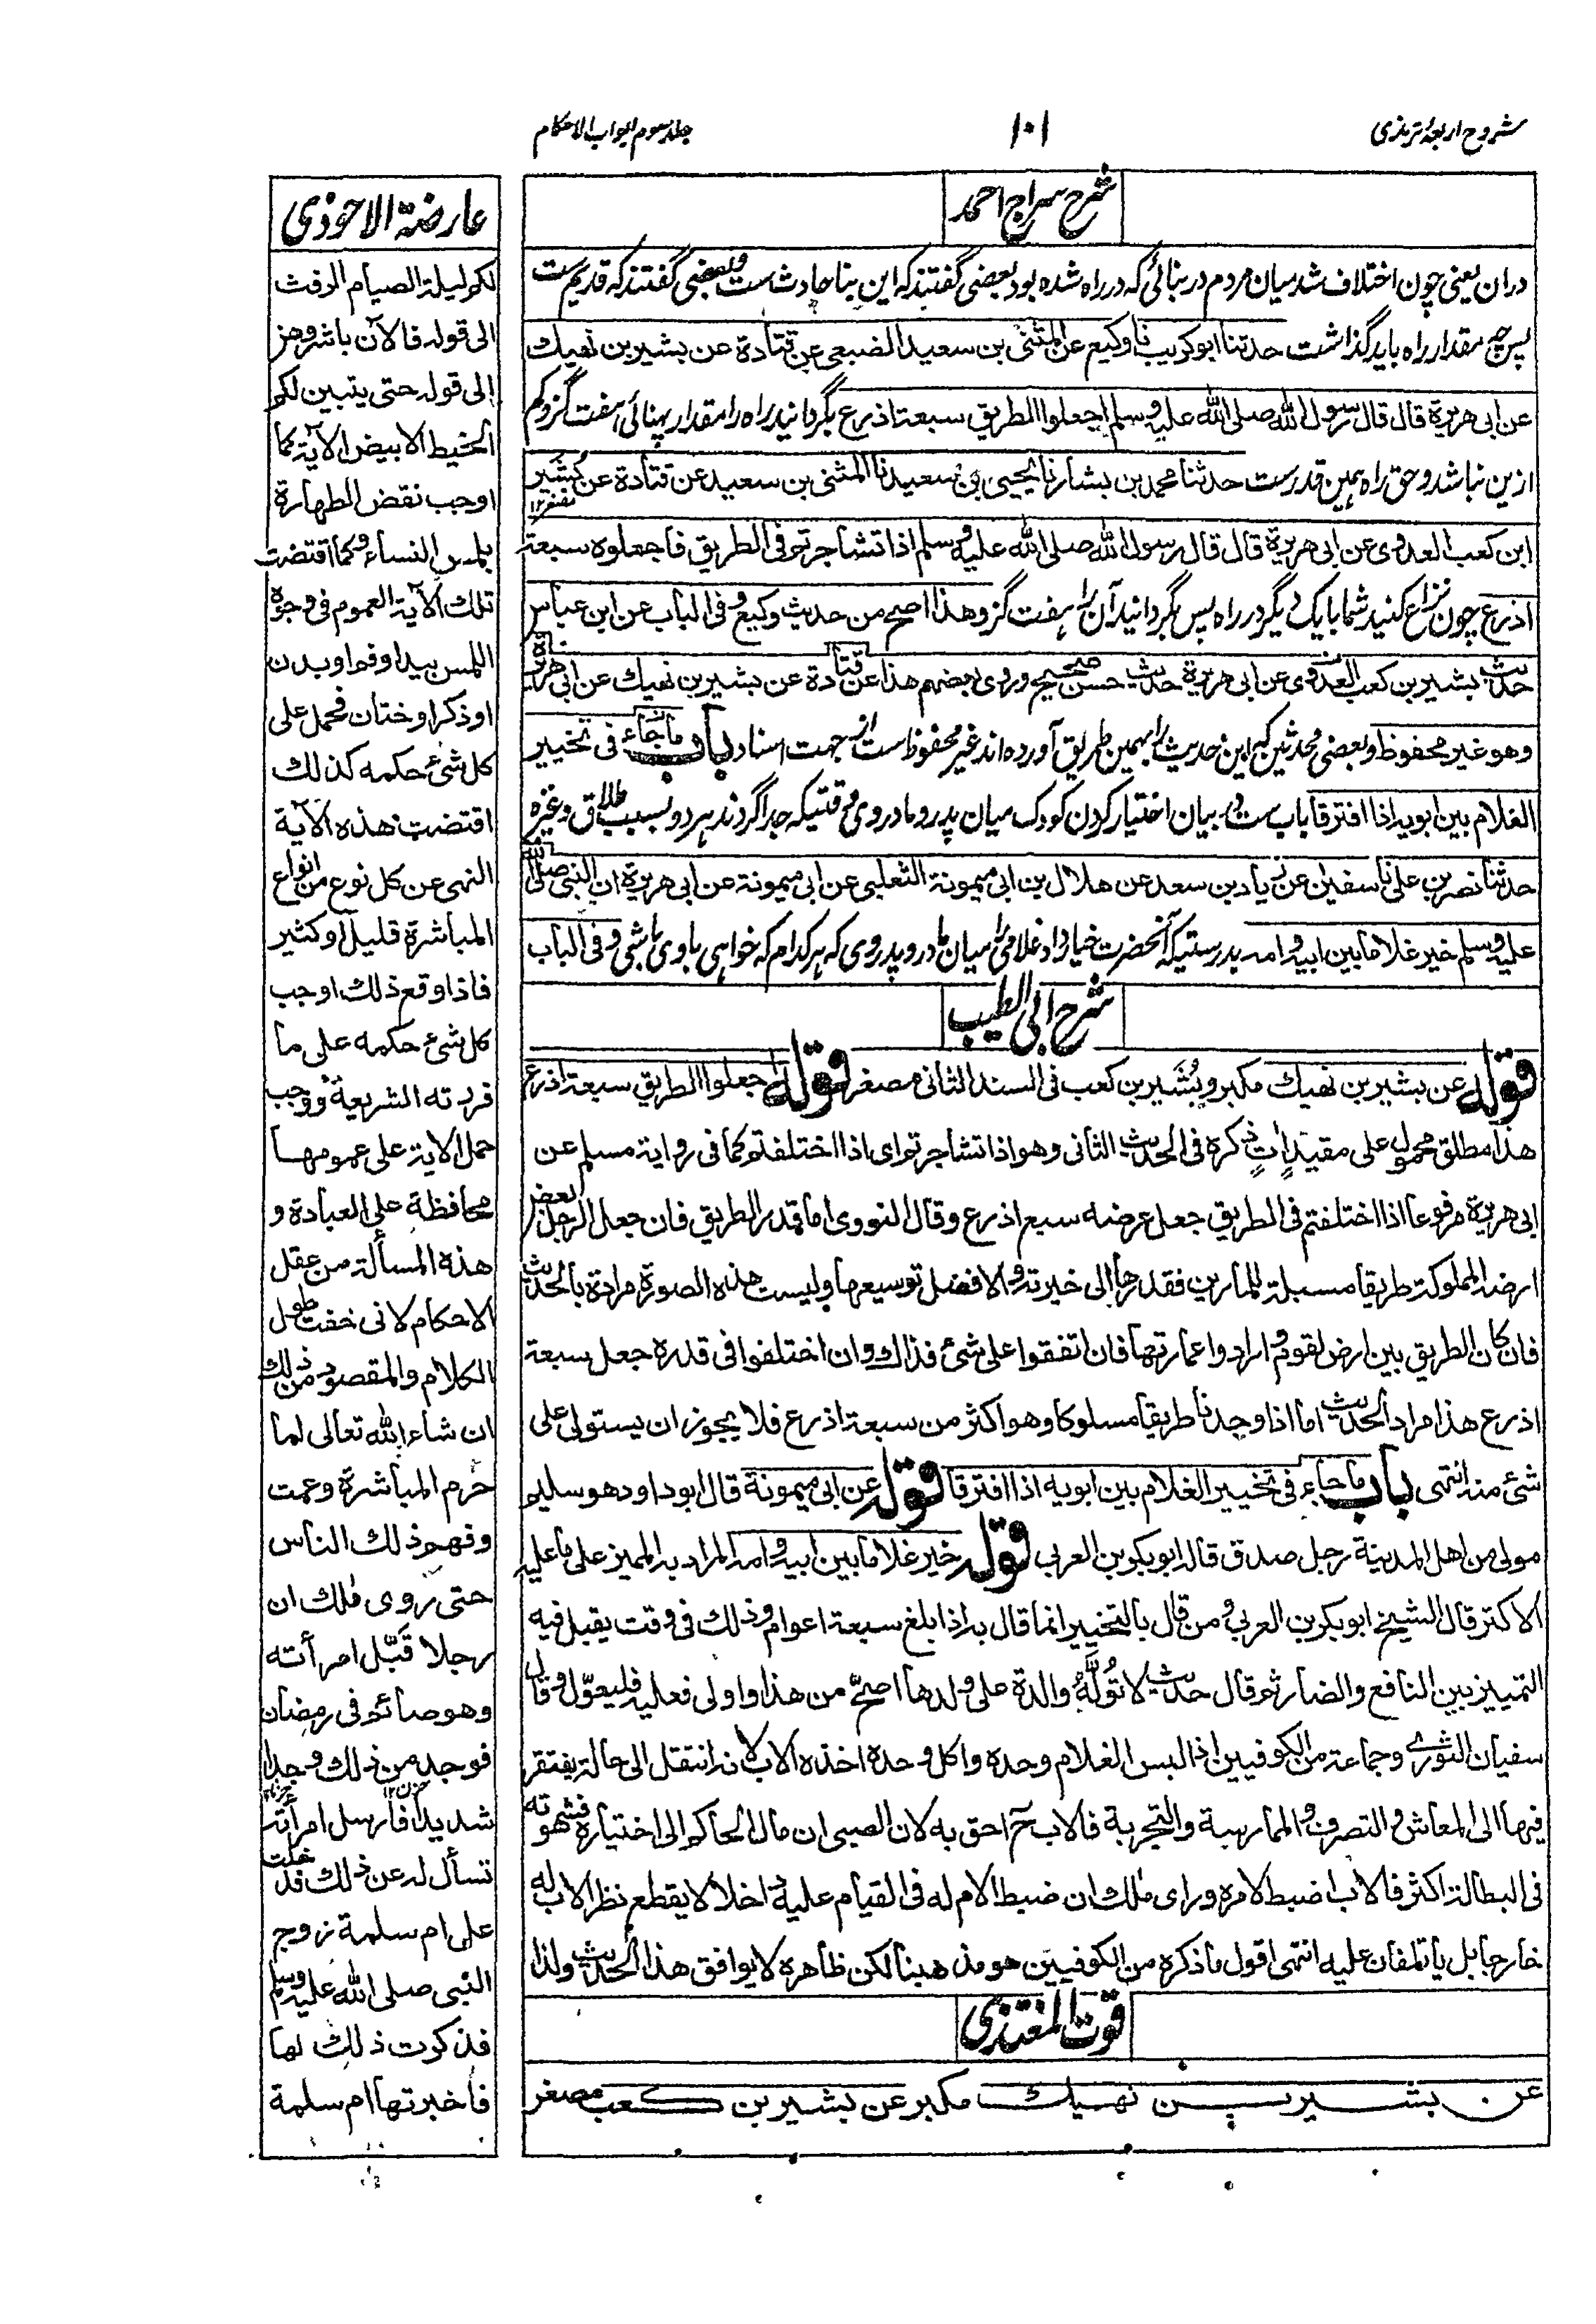 شروح اربعۂ ترمذی
۱۰۱
جلد سوم ابواب الاحکام
شرح سراج احمد
دران یعنی چون اختلاف شد میان مردم در بنائی که در راه شده بود بعضی گفتند که این بنا حادث ست و بعضی گفتند که قدیم ست
پس چه مقدار راه باید گذاشت حدثنا ابو کریب نا وکیع عن المثنی بن سعید الضبعی عن قتادة عن بشیر بن نهیك
عن ابی هریرة قال قال رسول الله صلی الله علیه وسلم اجعلوا الطریق سبعة اذرع بگردانید راه را مقدار پهنائی هفت گز و کم
ازین نباشد و حق راه همین قدرست حدثنا محمد بن بشار نا یحیی بن سعید نا المثنی بن سعید عن قتادة عن بُشَیر
مصغر ۱۲
ابن کعب العدوی عن ابی هریرة قال قال رسول الله صلی الله علیه وسلم اذا تشاجرتم فی الطریق فاجعلوه سبعة
اذرع چون نزاع کنید شما با یک دیگر در راه پس بگردانید آن را هفت گز وهذا اصح من حدیث وکیع وفی الباب عن ابن عباس
حدیث بشیر بن کعب العدوی عن ابی هریرة حدیث حسن صحیح وروی بعضهم هذا عن قتادة عن بشیر بن نهیك عن ابی هریرة
وهو غیر محفوظ و بعضی محدثین که این حدیث را بهمین طریق آورده اند غیر محفوظ است از جهت اسناد باب ما جاء فی تخییر
الغلام بین ابویه اذا افترقا باب ست در بیان اختیار کردن کودک میان پدر و مادر وی وقتیکه جدا گردند هر دو بسبب طلاق وغیره
حدثنا نصر بن علی نا سفین عن زیاد بن سعد عن هلال بن ابی میمونة الثعلبی عن ابی میمونة عن ابی هریرة ان النبی صلی الله
علیه وسلم خیر غلاما بین ابیه وامه بدرستیکه آنحضرت خیار داد غلامی را میان مادر و پدر وی که هر کدام که خواهی با وی باشی وفی الباب
شرح ابی الطیب
قوله عن بشیر بن نهیك مکبر وبُشَیر بن کعب فی السند الثانی مصغر قوله اجعلوا الطریق سبعة اذرع
هذا مطلق محمول علی مقید اٰتٍ ذکره فی الحدیث الثانی وهو اذا تشاجرتم ای اذا اختلفتم کما فی روایة مسلم عن
ابی هریرة مرفوعا اذا اختلفتم فی الطریق جعل عرضه سبع اذرع وقال النووی اما قدر الطریق فان جعل الرجل بعض
ارضه المملوکة طریقا مسبلة للمارین فقدرها الی خیرته والافضل توسیعها ولیست هذه الصورة مرادة بالحدیث
فان کان الطریق بین ارض لقوم وارادوا عمارتها فان اتفقوا علی شیٔ فذاك وان اختلفوا فی قدره جعل سبعة
اذرع هذا مراد الحدیث اما اذا وجدنا طریقا مسلوکا وهو اکثر من سبعة اذرع فلا یجوز ان یستولی علی
شیٔ منه انتهی باب ما جاء فی تخییر الغلام بین ابویه اذا افترقا قوله عن ابی میمونة قال ابو داود هو سلیم
مولی من اهل المدینة رجل صدق قاله ابو بکر بن العربی قوله خیر غلاما بین ابیه وامه المراد به الممیز علی ما علیه
الاکثر قال الشیخ ابو بکر بن العربی ومن قال بالتخییر انما قال به اذا بلغ سبعة اعوام وذلك فی وقت یقبل فیه
التمییز بین النافع والضار ثم قال حدیث لا تُولَّهُ والدة علی ولدها اصحّ من هذا واولی فعلیه فلیعوّل وقال
سفیان الثوری وجماعة من الکوفیین اذا لبس الغلام وحده واکل وحده اخذه الاب لانه انتقل الی حالة یفتقر
فیها الی المعاش والتصرف والممارسة والتجربة فالاب ح احق به لان الصبی ان مال الحاکم الی اختیاره فشهوته
فی البطالة اکثر فالاب اضبط لامره ورای مٰلك ان ضبط الام له فی القیام علیه داخلا لا یقطع نظر الاب له
خارجا بل یاتلفان علیه انتهی اقول ما ذکره من الکوفیین هو مذهبنا لکن ظاهره لا یوافق هذا الحدیث ولذا
قوت المغتذی
عن بشیر بن نهیك مکبر عن بشیر بن کعب مصغر
عارضة الاحوذی
لکم لیلة الصیام الرفث
الی قوله فالآن باشروهن
الی قوله حتی یتبین لکم
الخیط الابیض الآیة کما
اوجب نقض الطهارة
بلمس النساء وکما اقتضت
تلك الآیة العموم فی وجوه
اللمس بید او فم او بدن
او ذکر او ختان فحمل علی
کل شیٔ حکمه کذلك
اقتضت هذه الآیة
النهی عن کل نوع من انواع
المباشرة قلیل او کثیر
فاذا وقع ذلك اوجب
کل شیٔ حکمه علی ما
قررته الشریعة ووجب
حمل الایة علی عمومها
محافظة علی العبادة و
هذه المسألة من عقل
الاحکام لانی خفت طول
الکلام والمقصود من ذلك
ان شاء الله تعالی لما
حرم المباشرة وعمت
وفهم ذلك الناس
حتی روی مٰلك ان
رجلا قَبّل امرأته
وهو صائم فی رمضان
فوجد من ذلك وجدا
شدیدا فارسل امرأته
تسأل له عن ذلك فدخلت
علی ام سلمة زوج
النبی صلی الله علیه وسلم
فذکرت ذلك لها
فاخبرتها ام سلمة